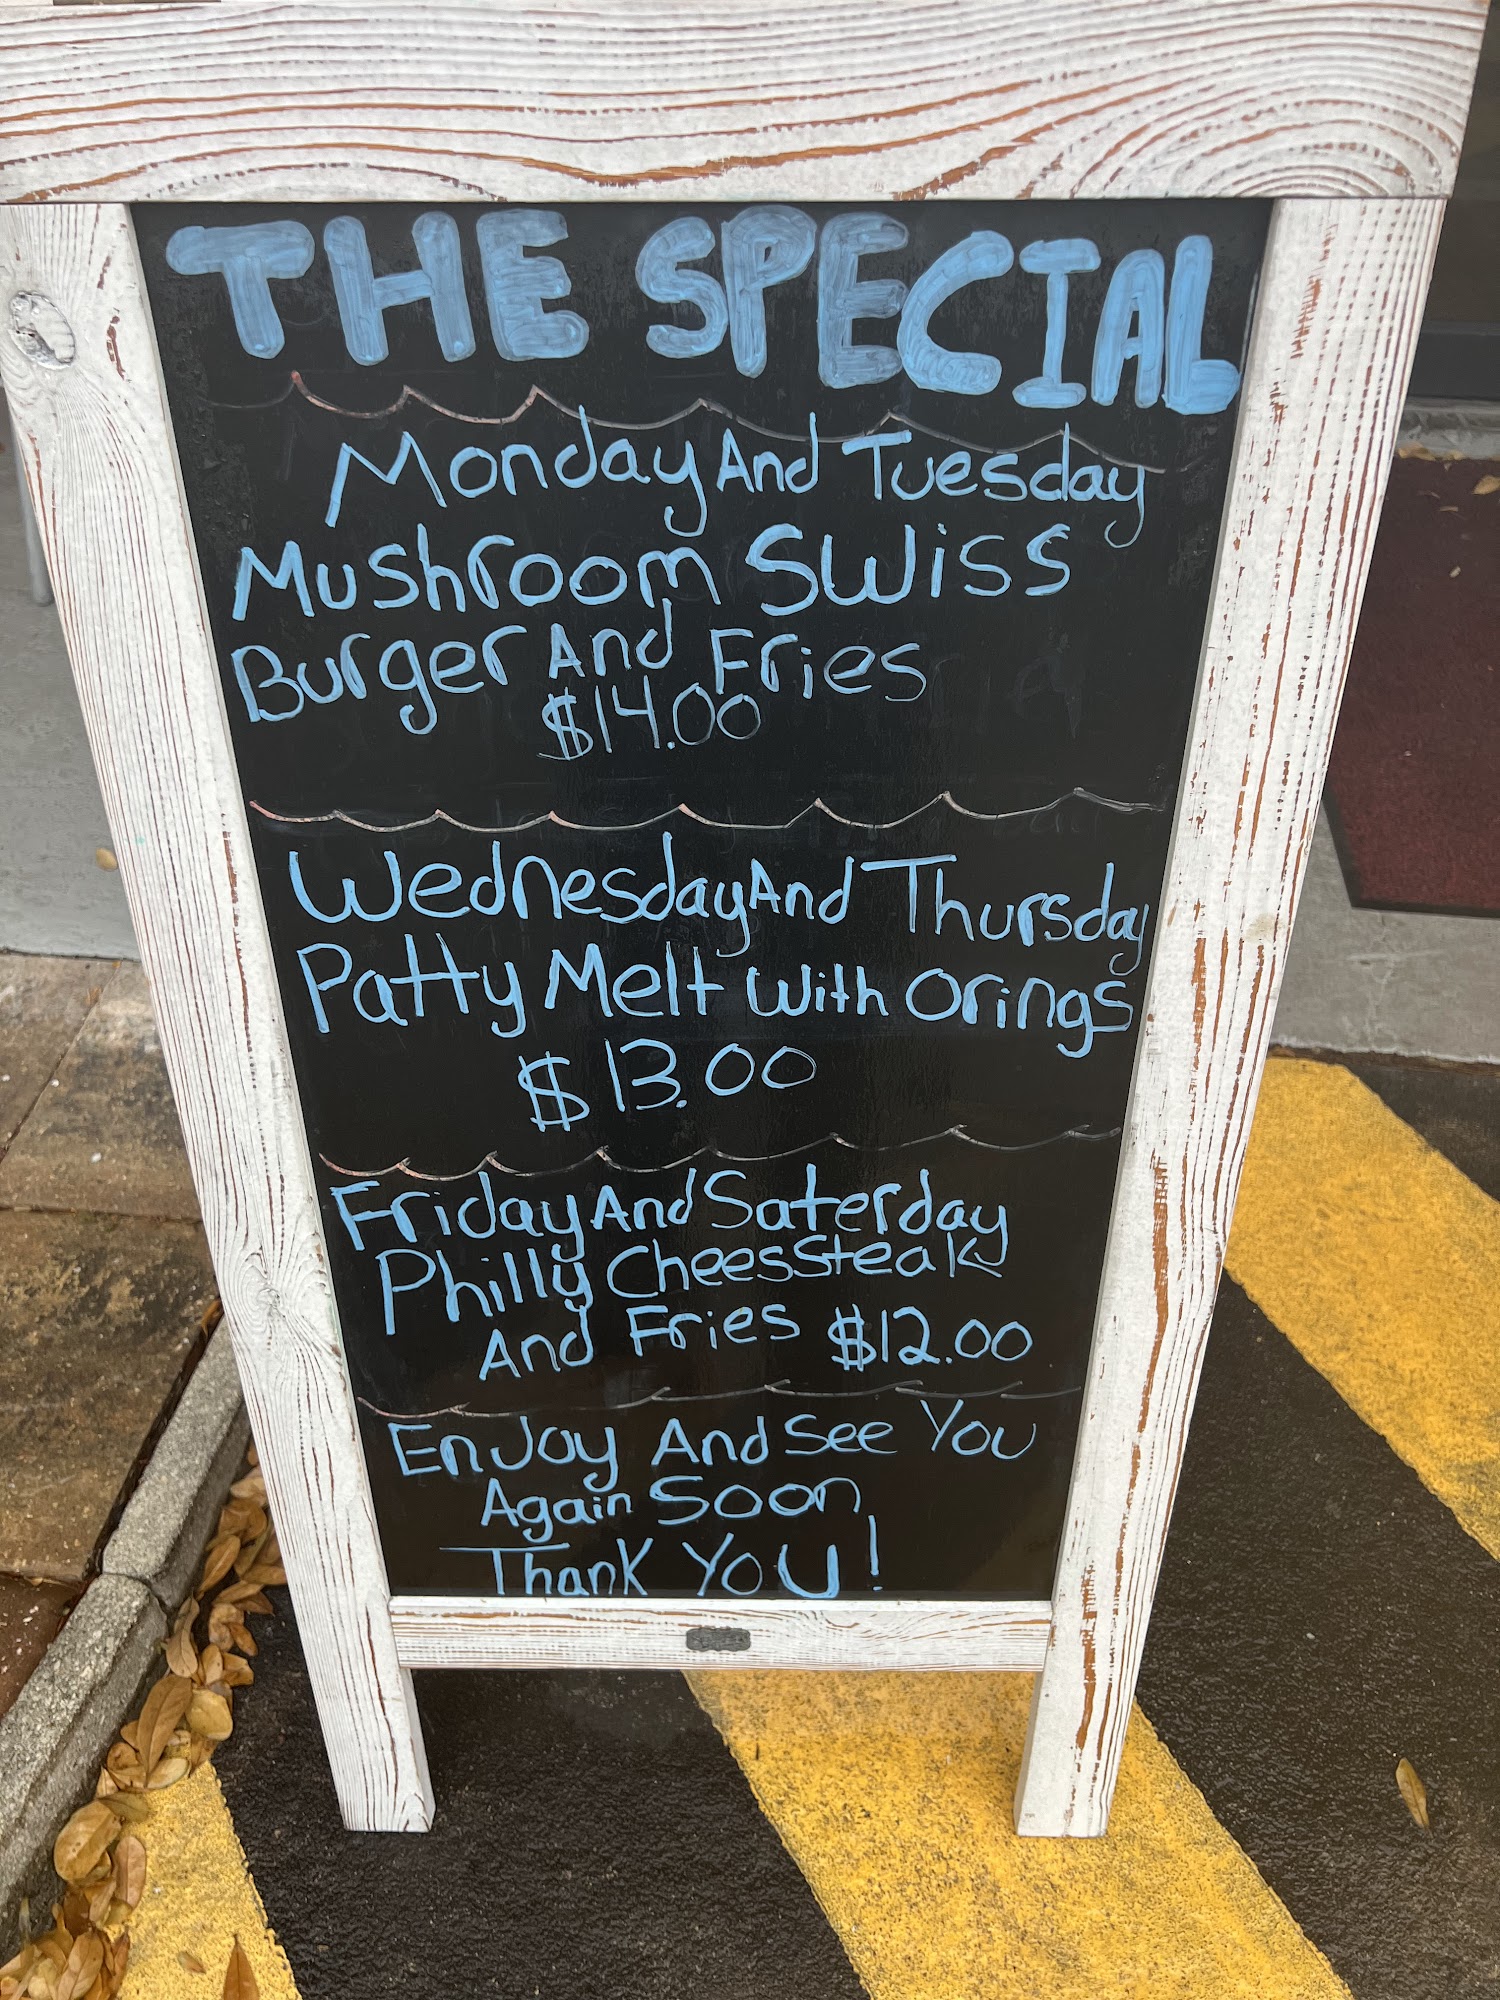 THE SPECIAL
Monday And Tuesday
Mushroom Swiss
Burger And Fries
$14.00
Wednesday And Thursday
Patty Melt with Orings
$13.00
Friday And Saterday
Philly Cheessteak
And Fries $12.00
Enjoy And See You
Again Soon
Thank You!